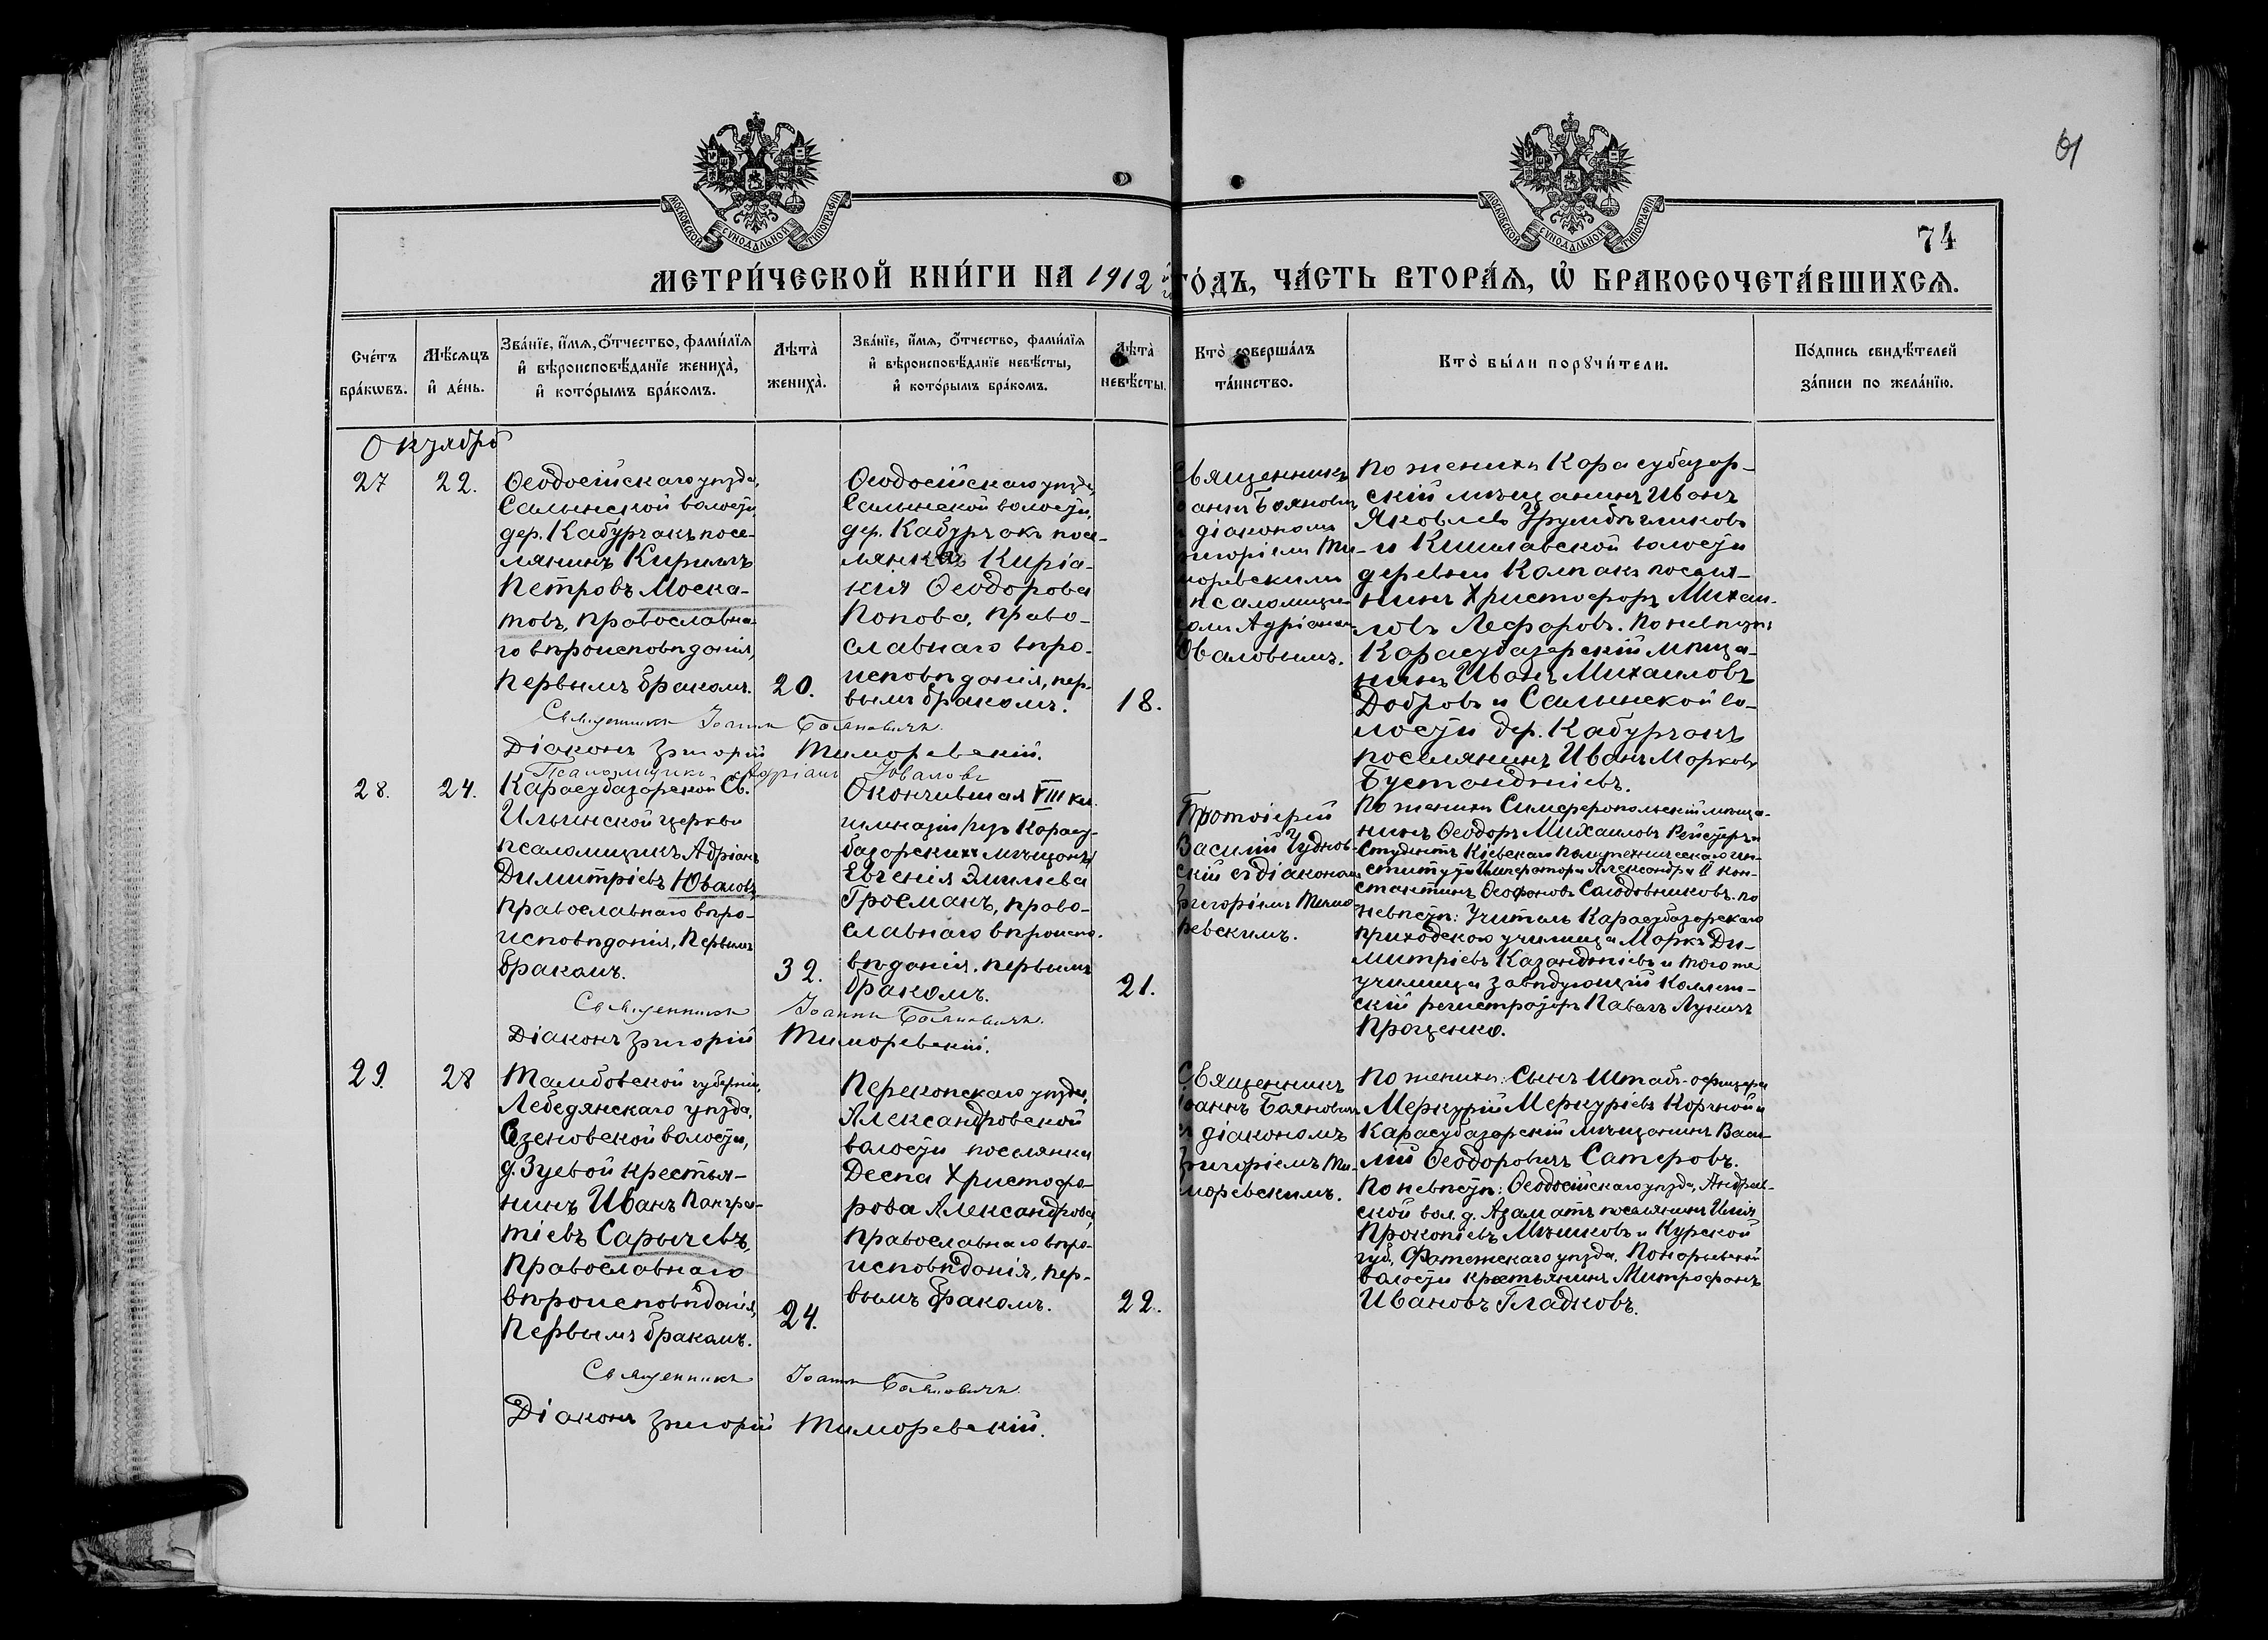 61
МОСКОВСКОЙ СѴНОДАЛЬНОЙ ТИПОГРАФІИ
МОСКОВСКОЙ СѴНОДАЛЬНОЙ ТИПОГРАФІИ
74
МЕТРИ́ЧЕСКОЙ КНИ́ГИ НА 1912 й ГО́ДЪ, ЧА́СТЬ ВТОРА́Ѧ, Ѡ҆ БРАКОСОЧЕТА́ВШИХСѦ.
Сче́тъ бра́кѡвъ.
Мѣ́сѧцъ и҆ де́нь.
Зва́нїе, и҆́мѧ, ѻ҆́тчество, фамилїѧ
и҆ вѣроисповѣ́данїе жениха̀,
и҆ кото́рымъ бра́комъ.
Лѣта̀ жениха̀.
Зва́нїе, и҆́мѧ, ѻ҆́тчество, фамилїѧ
и҆ вѣроисповѣ́данїе невѣ́сты,
и҆ кото́рымъ бра́комъ.
Лѣта̀ невѣ́сты.
Кто̀ соверша́лъ
та́инство.
Кто̀ бы́ли порꙋчи́тели.
По́дпись свидѣ́телей
за́писи по жела́нїю.
Октябрь
27
22.
Ѳеодосійскаго уѣзда,
Салынской волости,
дер. Кабурчакъ посе-
лянинъ Кириллъ
Петровъ Моска-
товъ, православна-
го вѣроисповѣданія,
первымъ бракомъ.
20.
Ѳеодосійскаго уѣзда,
Салынской волости,
дер. Кабурчакъ посе-
лянка Киріа-
кія Ѳеодорова
Попова, право-
славнаго вѣро-
исповѣданія, пер-
вымъ бракомъ.
18.
Священникъ
Іоаннъ Бояновичъ
и діакономъ
Григоріемъ Ти-
моревскимъ
и псаломщи-
комъ Адріаном
Юваловымъ.
По женихѣ Карасубазар-
скій мѣщанинъ Иванъ
Яковлевъ Урумбѣгликовъ
и Кишлавской волости
деревни Колпакъ поселя-
нинъ Христофоръ Михаи-
ловъ Лефаровъ. По невѣстѣ
Карасубазарскій мѣща-
нинъ Иванъ Михаиловъ
Добровъ и Салынской во-
лости дер. Кабурчакъ
поселянинъ Иванъ Марковъ
Бустанджіевъ.
Священникъ Іоаннъ Бояновичъ.
Діаконъ Григорій Тиморевскій.
Псаломщикъ Адріанъ Юваловъ
28.
24.
Карасубазарской Св.
Ильинской церкви
псаломщикъ Адріанъ
Димитріевъ Юваловъ,
православнаго вѣро-
исповѣданія, первымъ
бракомъ.
32.
Окончившая VIII кл.
гимназіи изъ Карасу-
базарскихъ мѣщанъ
Евгенія Эмилева
Гросманъ, право-
славнаго вѣроиспо-
вѣданія, первымъ
бракомъ.
21.
Протоіерей
Василій Чуднов-
скій съ діакономъ
Григоріемъ Тимо-
ревскимъ.
По женихѣ Симферопольскій мѣща-
нинъ Ѳеодоръ Михаиловъ Рейстеръ и
Студентъ Кіевскаго Политехническаго ин-
ститута Императора Александра II Кон-
стантинъ Ѳеофановъ Солодовниковъ. По
невѣстѣ: Учитель Карасубазарскаго
приходскаго училища Маркъ Ди-
митріевъ Казанджіевъ и того же
училища завѣдующій Коллеж-
скій регистраторъ Павелъ Лукичъ
Проценко.
Священникъ Іоаннъ Бояновичъ.
Діаконъ Григорій Тиморевскій.
29.
28
Тамбовской губерніи,
Лебедянскаго уѣзда,
волости,
д. Зуевой крестья-
нинъ Иванъ Панкра-
тіевъ Сарычевъ,
православнаго
вѣроисповѣданія,
первымъ бракомъ.
24.
Перекопскаго уѣзда,
Александровской
волости поселянка
Деспа Христофо-
рова Александрова,
православнаго вѣро-
исповѣданія, пер-
вымъ бракомъ.
22.
Священникъ
Іоаннъ Бояновичъ
и діакономъ
Григоріемъ Ти-
моревскимъ.
По женихѣ: Сынъ Штабъ-офицера
Меркурій Меркуріевъ Корчной и
Карасубазарскій мѣщанинъ Васи-
лій Ѳеодоровичъ Сатеровъ.
По невѣстѣ: Ѳеодосійскаго уѣзда, Андреев-
ской вол. д. Азаматъ поселянинъ Илія
Прокопіевъ Мѣшковъ и Курской
губ., Фатежскаго уѣзда, Понаревской
волости крестьянинъ Митрофанъ
Ивановъ Гладковъ.
Священникъ Іоаннъ Бояновичъ.
Діаконъ Григорій Тиморевскій.